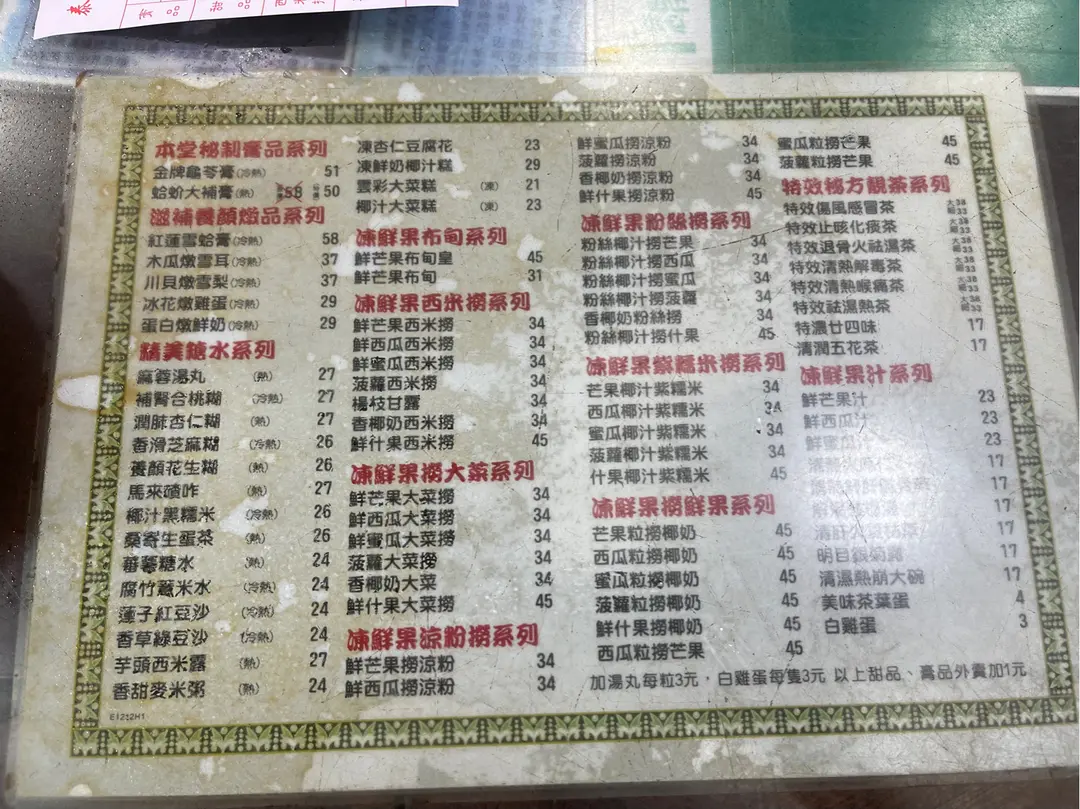 泰
賓品
甜品
西米撈
本堂秘制膏品系列
金牌龜苓膏(冷熱) 51
蛤蚧大補膏(熱) 58 特價 50
滋補養顏燉品系列
紅蓮雪蛤膏(冷熱) 58
木瓜燉雪耳(冷熱) 37
川貝燉雪梨(冷熱) 37
冰花燉雞蛋(冷熱) 29
蛋白燉鮮奶(冷熱) 29
精美糖水系列
麻蓉湯丸 (熱) 27
補腎合桃糊 (冷熱) 27
潤肺杏仁糊 (熱) 27
香滑芝麻糊 (冷熱) 26
養顏花生糊 (熱) 26
馬來喳咋 (熱) 27
椰汁黑糯米 (冷熱) 26
桑寄生蛋茶 (熱) 26
蕃薯糖水 (熱) 24
腐竹薏米水 (冷熱) 24
蓮子紅豆沙 (冷熱) 24
香草綠豆沙 (冷熱) 24
芋頭西米露 (熱) 27
香甜麥米粥 (熱) 24
E1212H1
凍杏仁豆腐花 23
凍鮮奶椰汁糕 29
雲彩大菜糕 (凍) 21
椰汁大菜糕 (凍) 23
凍鮮果布甸系列
鮮芒果布甸皇 45
鮮芒果布甸 31
凍鮮果西米撈系列
鮮芒果西米撈 34
鮮西瓜西米撈 34
鮮蜜瓜西米撈 34
菠蘿西米撈 34
楊枝甘露 34
香椰奶西米撈 34
鮮什果西米撈 45
凍鮮果撈大菜系列
鮮芒果大菜撈 34
鮮西瓜大菜撈 34
鮮蜜瓜大菜撈 34
菠蘿大菜撈 34
香椰奶大菜 34
鮮什果大菜撈 45
凍鮮果涼粉撈系列
鮮芒果撈涼粉 34
鮮西瓜撈涼粉 34
鮮蜜瓜撈涼粉 34
菠蘿撈涼粉 34
香椰奶撈涼粉 34
鮮什果撈涼粉 45
凍鮮果粉絲撈系列
粉絲椰汁撈芒果 34
粉絲椰汁撈西瓜 34
粉絲椰汁撈蜜瓜 34
粉絲椰汁撈菠蘿 34
香椰奶粉絲撈 34
粉絲椰汁撈什果 45
凍鮮果紫糯米撈系列
芒果椰汁紫糯米 34
西瓜椰汁紫糯米 34
蜜瓜椰汁紫糯米 34
菠蘿椰汁紫糯米 34
什果椰汁紫糯米 45
凍鮮果撈鮮果系列
芒果粒撈椰奶 45
西瓜粒撈椰奶 45
蜜瓜粒撈椰奶 45
菠蘿粒撈椰奶 45
鮮什果撈椰奶 45
西瓜粒撈芒果 45
蜜瓜粒撈芒果 45
菠蘿粒撈芒果 45
特效秘方靚茶系列
特效傷風感冒茶 大38 細33
特效止咳化痰茶 大38 細33
特效退骨火祛濕茶 大38 細33
特效清熱解毒茶 大38 細33
特效清熱喉痛茶 大38 細33
特效祛濕熱茶 大38 細33
特濃廿四味 17
清潤五花茶 17
凍鮮果汁系列
鮮芒果汁 23
鮮西瓜汁 23
鮮蜜瓜汁 23
17
17
17
清肝 17
明目銀菊露 17
清濕熱崩大碗 17
美味茶葉蛋 4
白雞蛋 3
加湯丸每粒3元，白雞蛋每隻3元 以上甜品、膏品外賣加1元